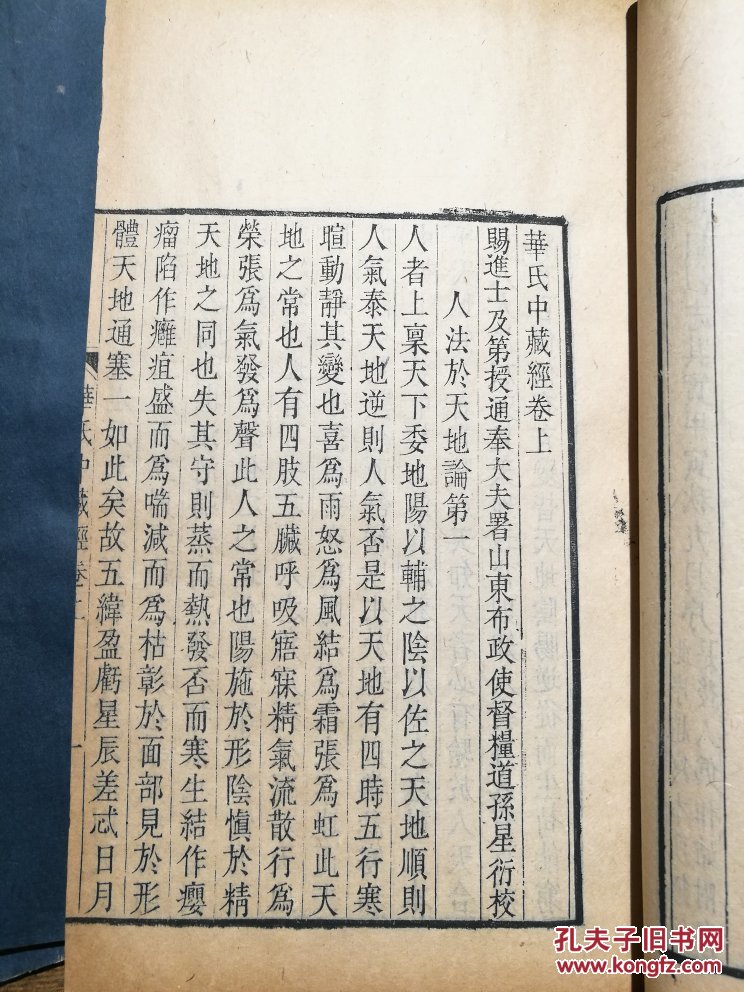 華氏中藏經卷上
賜進士及第授通奉大夫署山東布政使督糧道孫星衍校
人法於天地論第一
人者上稟天下委地陽以輔之陰以佐之天地順則
人氣泰天地逆則人氣否是以天地有四時五行寒
暄動靜其變也喜爲雨怒爲風結爲霜張爲虹此天
地之常也人有四肢五臟呼吸寤寐精氣流散行爲
榮張爲氣發爲聲此人之常也陽施於形陰愼於精
天地之同也失其守則蒸而熱發否而寒生結作癭
瘤陷作癰疽盛而爲喘減而爲枯彰於面部見於形
體天地通塞一如此矣故五緯盈虧星辰差忒日月
華氏中藏經卷上
一
孔夫子旧书网
www.kongfz.com